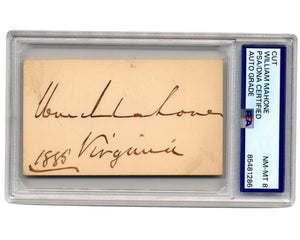 Wm Mahone
1885 Virginia
CUT
WILLIAM MAHONE
PSA/DNA CERTIFIED
AUTO GRADE
NM-MT 8
85481286